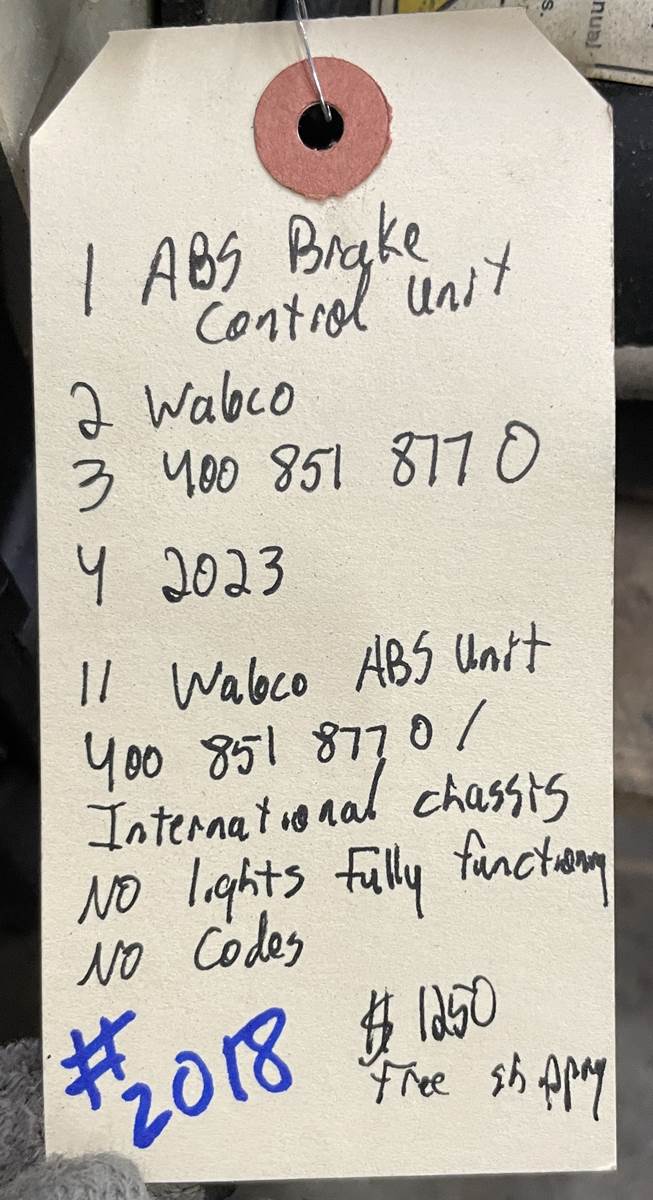 s.
Janu
1 ABS Brake
Control Unit
2 Wabco
3 400 851 877 0
4 2023
11 Wabco ABS Unit
400 851 877 0 /
International chassis
NO lights fully functioning
NO Codes
#2018
$ 1250
free shipping